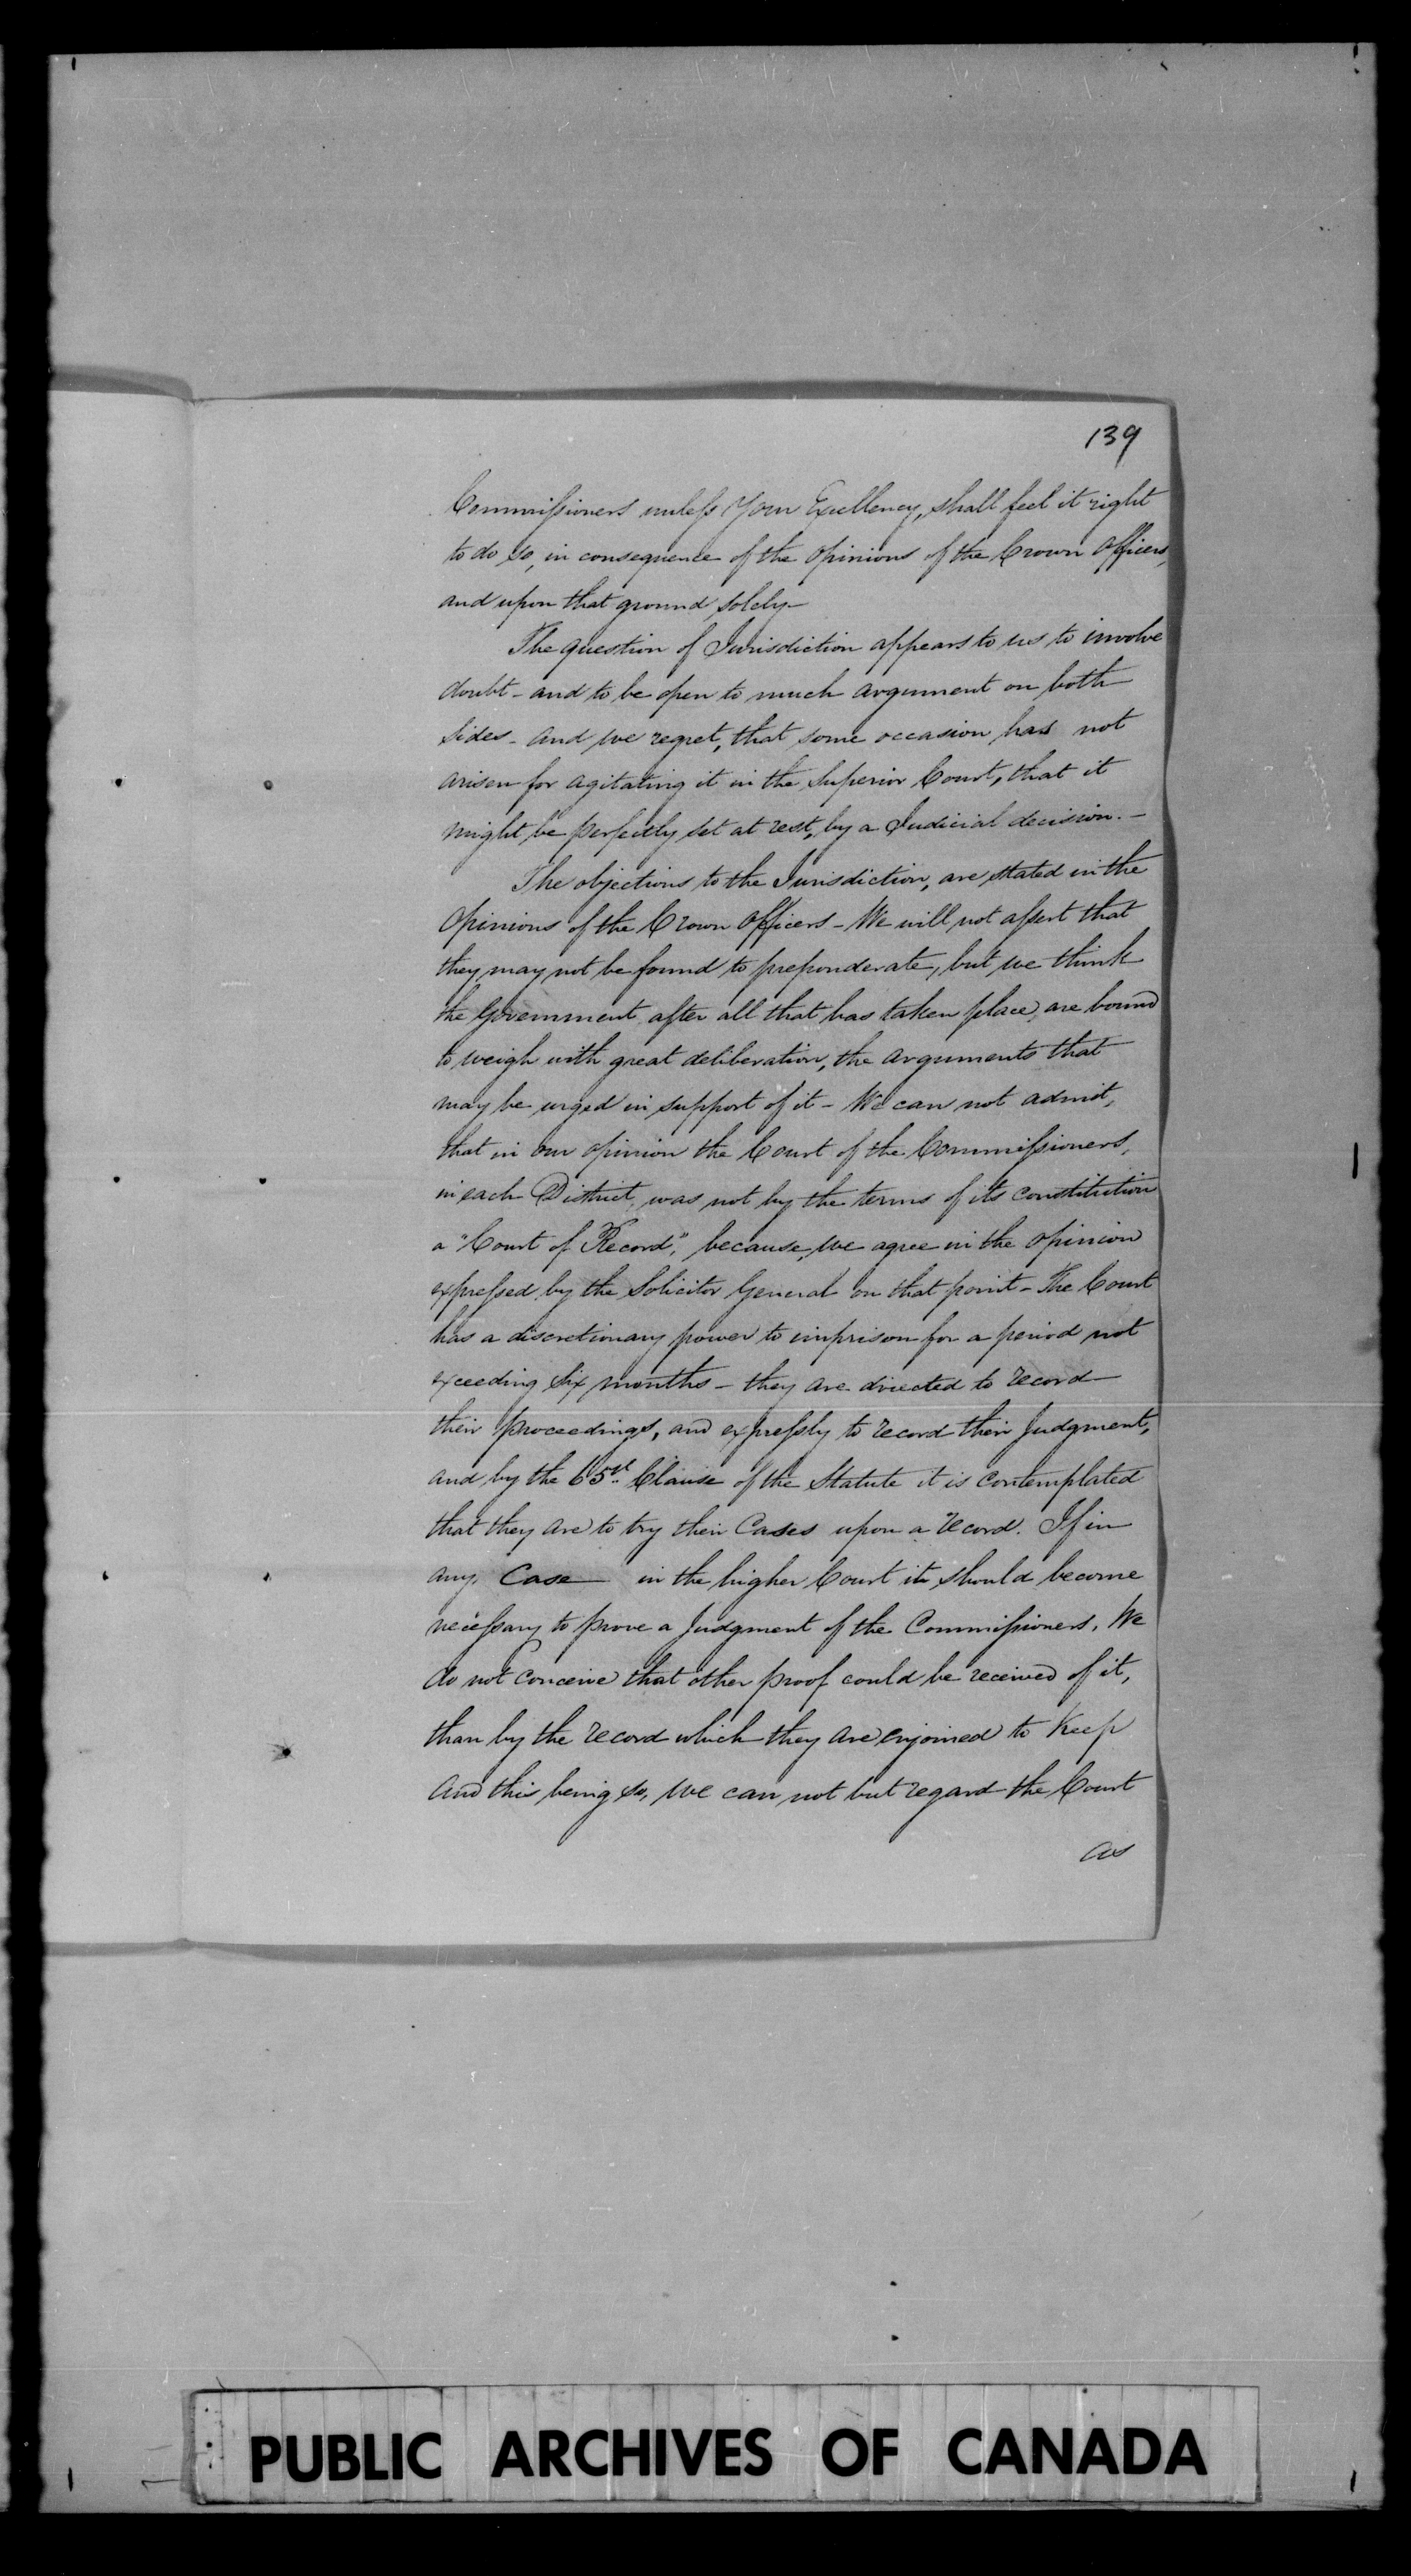 139
Commissioners unless Your Excellency, shall feel it right
to do so, in consequence of the opinions of the Crown Officers,
and upon that ground, solely—
The question of Jurisdiction appears to us to involve
doubt - and to be open to much argument on both
sides - and we regret, that some occasion has not
arisen for agitating it in the Superior Court, that it
might be perfectly set at rest, by a Judicial decision. —
The objections to the Jurisdiction, are stated in the
Opinions of the Crown Officers - We will not assert that
they may not be found to preponderate, but we think
the Government after all that has taken place, are bound
to weigh with great deliberation, the arguments that
may be urged in support of it - We can not admit,
that in our opinion the Court of the Commissioners,
in each District, was not by the terms of its constitution
a "Court of Record", because, we agree in the opinion
expressed by the Solicitor General on that point - The Court
has a discretionary power to imprison for a period not
exceeding six months - they are directed to record
their proceedings, and expressly to record their Judgment,
and by the 65th Clause of the Statute it is contemplated
that they are to try their Cases upon a record. If in
any Case in the higher Court it should become
necessary to prove a Judgment of the Commissioners, We
do not conceive that other proof could be received of it,
than by the record which they are enjoined to Keep
and this being so, we can not but regard the Court
as
PUBLIC ARCHIVES OF CANADA